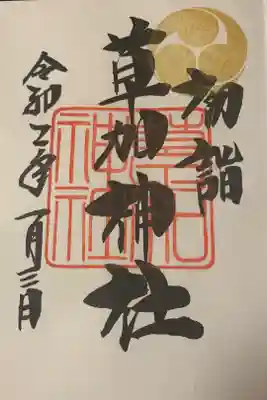 初詣
草加神社
令和二年一月三日
草加
神社